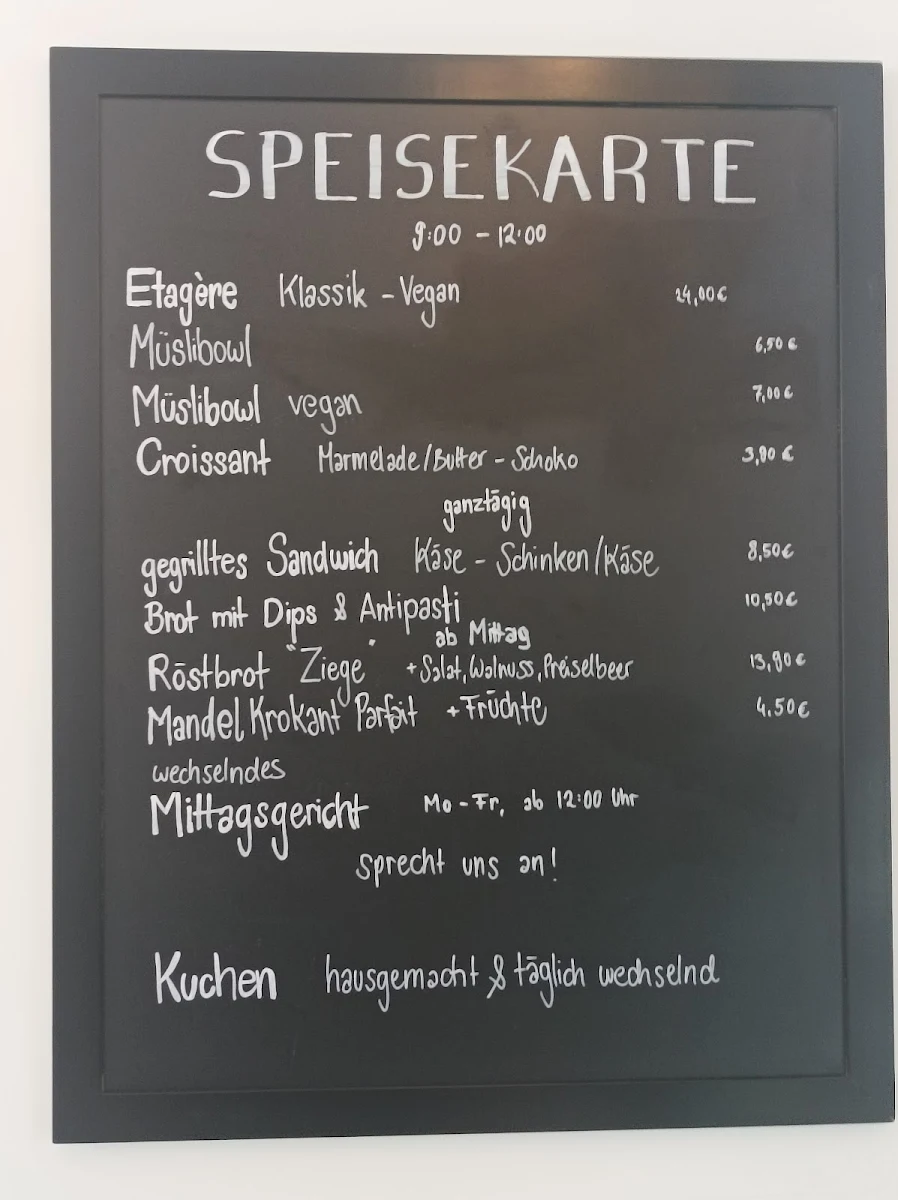 SPEISEKARTE
9:00 - 12:00
Etagère Klassik - Vegan 24,00€
Müslibowl 6,50 €
Müslibowl vegan 7,00 €
Croissant Marmelade/Butter - Schoko 3,90 €
ganztägig
gegrilltes Sandwich Käse - Schinken/Käse 8,50€
Brot mit Dips & Antipasti 10,50€
ab Mittag
Röstbrot "Ziege" + Salat, Walnuss, Preiselbeer 13,90€
Mandel Krokant Parfait + Früchte 4.50€
wechselndes
Mittagsgericht Mo - Fr, ab 12:00 Uhr
sprecht uns an!
Kuchen hausgemacht & täglich wechselnd